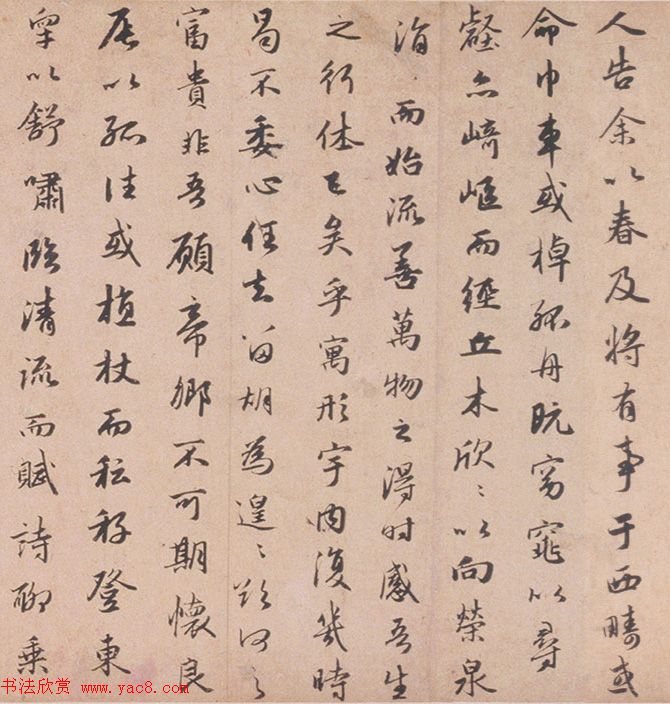 人告余以春及將有事于西疇或
命巾車或棹孤舟既窈窕以尋
壑亦崎嶇而經丘木欣〻以向榮泉
涓而始流善萬物之得时感吾生
之行休已矣乎寓形宇内復幾時
曷不委心任去留胡為遑〻欲何之
富貴非吾願帝鄉不可期懷良
辰以孤往或植杖而耘耔登東
皐以舒嘯臨清流而賦詩聊乘
书法欣赏 www.yac8.com